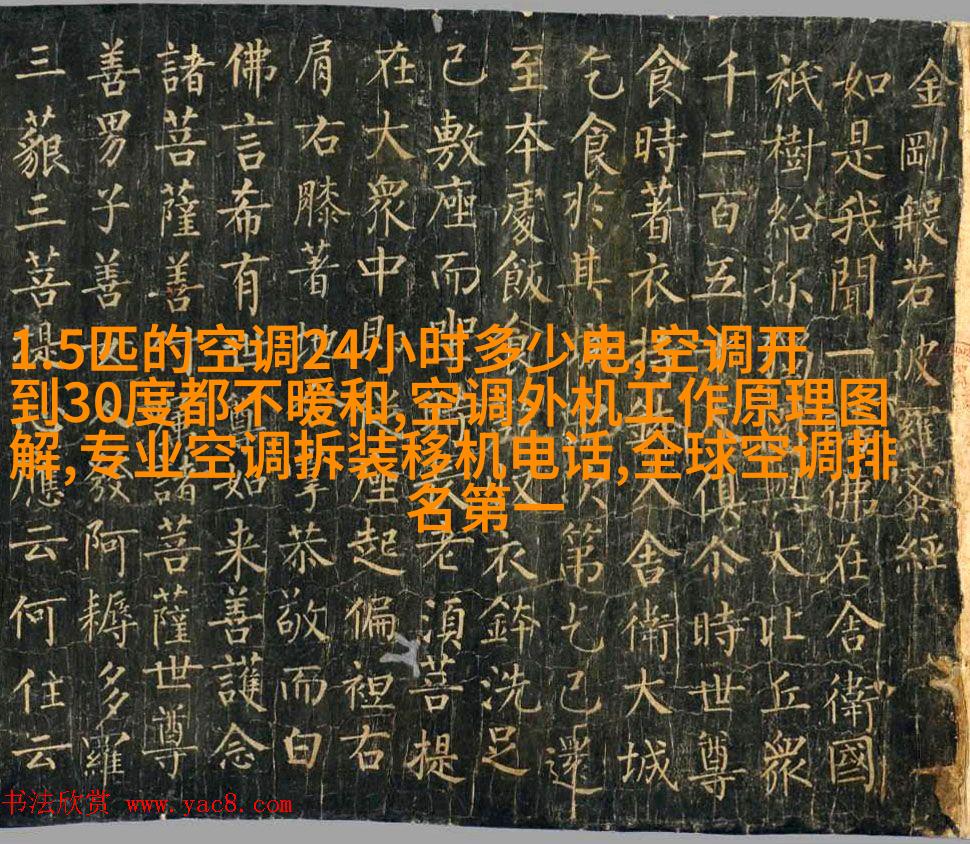 金剛般若波羅蜜經
如是我聞一佛在舍衛國
祇樹給孤大比丘眾
千二百五十俱尒時世尊
食時著衣持入舍衛大城
乞食於其次第乞已還
至本處飯食衣鉢洗足
已敷座而坐長老須菩提
在大眾中即座起偏袒右
肩右膝著地掌恭敬而白
佛言希有世如来善護念
諸菩薩善付諸菩薩世尊
善男子善發阿耨多羅
三藐三菩提應云何住云
1.5匹的空调24小时多少电,空调开
到30度都不暖和,空调外机工作原理图
解,专业空调拆装移机电话,全球空调排
名第一
书法欣赏 www.yac8.com